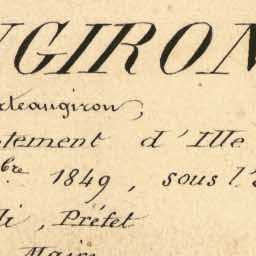 UGIRON
teaugiron,
tement d'Ille
bre 1849, sous l'
di, Préfet
Maire